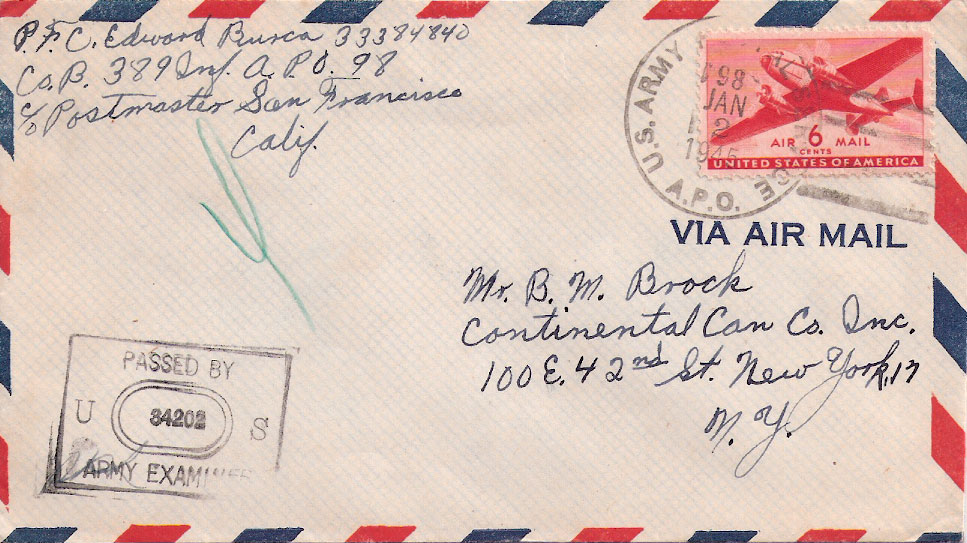 P.F.C. Edward Bursa 33384840
Co. B. 389 Inf. A.P.O. 98
c/o Postmaster San Francisco
Calif.
U.S. ARMY
A.P.O.
98
JAN
2
AIR 6 MAIL
CENTS
UNITED STATES OF AMERICA
VIA AIR MAIL
Mr. B. M. Brock
Continental Can Co. Inc.
100 E. 42nd St. New York, 17
N. Y.
PASSED BY
U 34202 S
ARMY EXAMINER